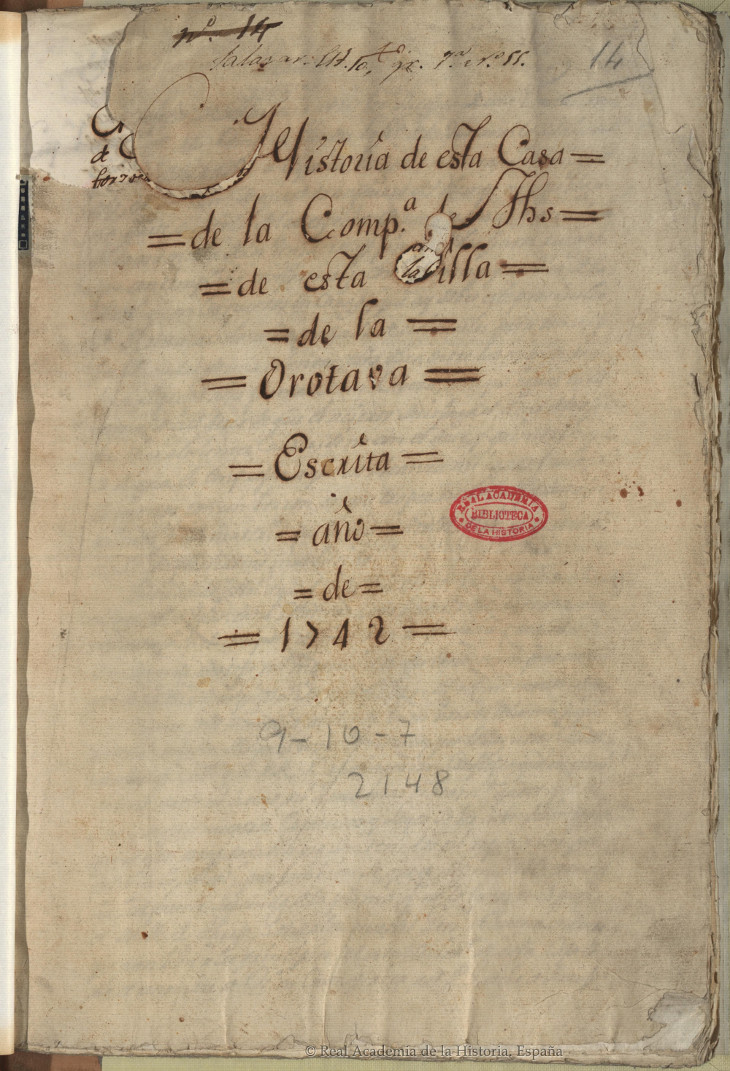 nº 14
14
Historia de esta Casa =
= de la Comp.ª de Jhs =
= de esta Villa =
= de la =
= Orotava =
= Escrita =
= año =
= de =
= 1742 =
REAL ACADEMIA
BIBLIOTECA
DE LA HISTORIA
9-10-7
2148
© Real Academia de la Historia, España